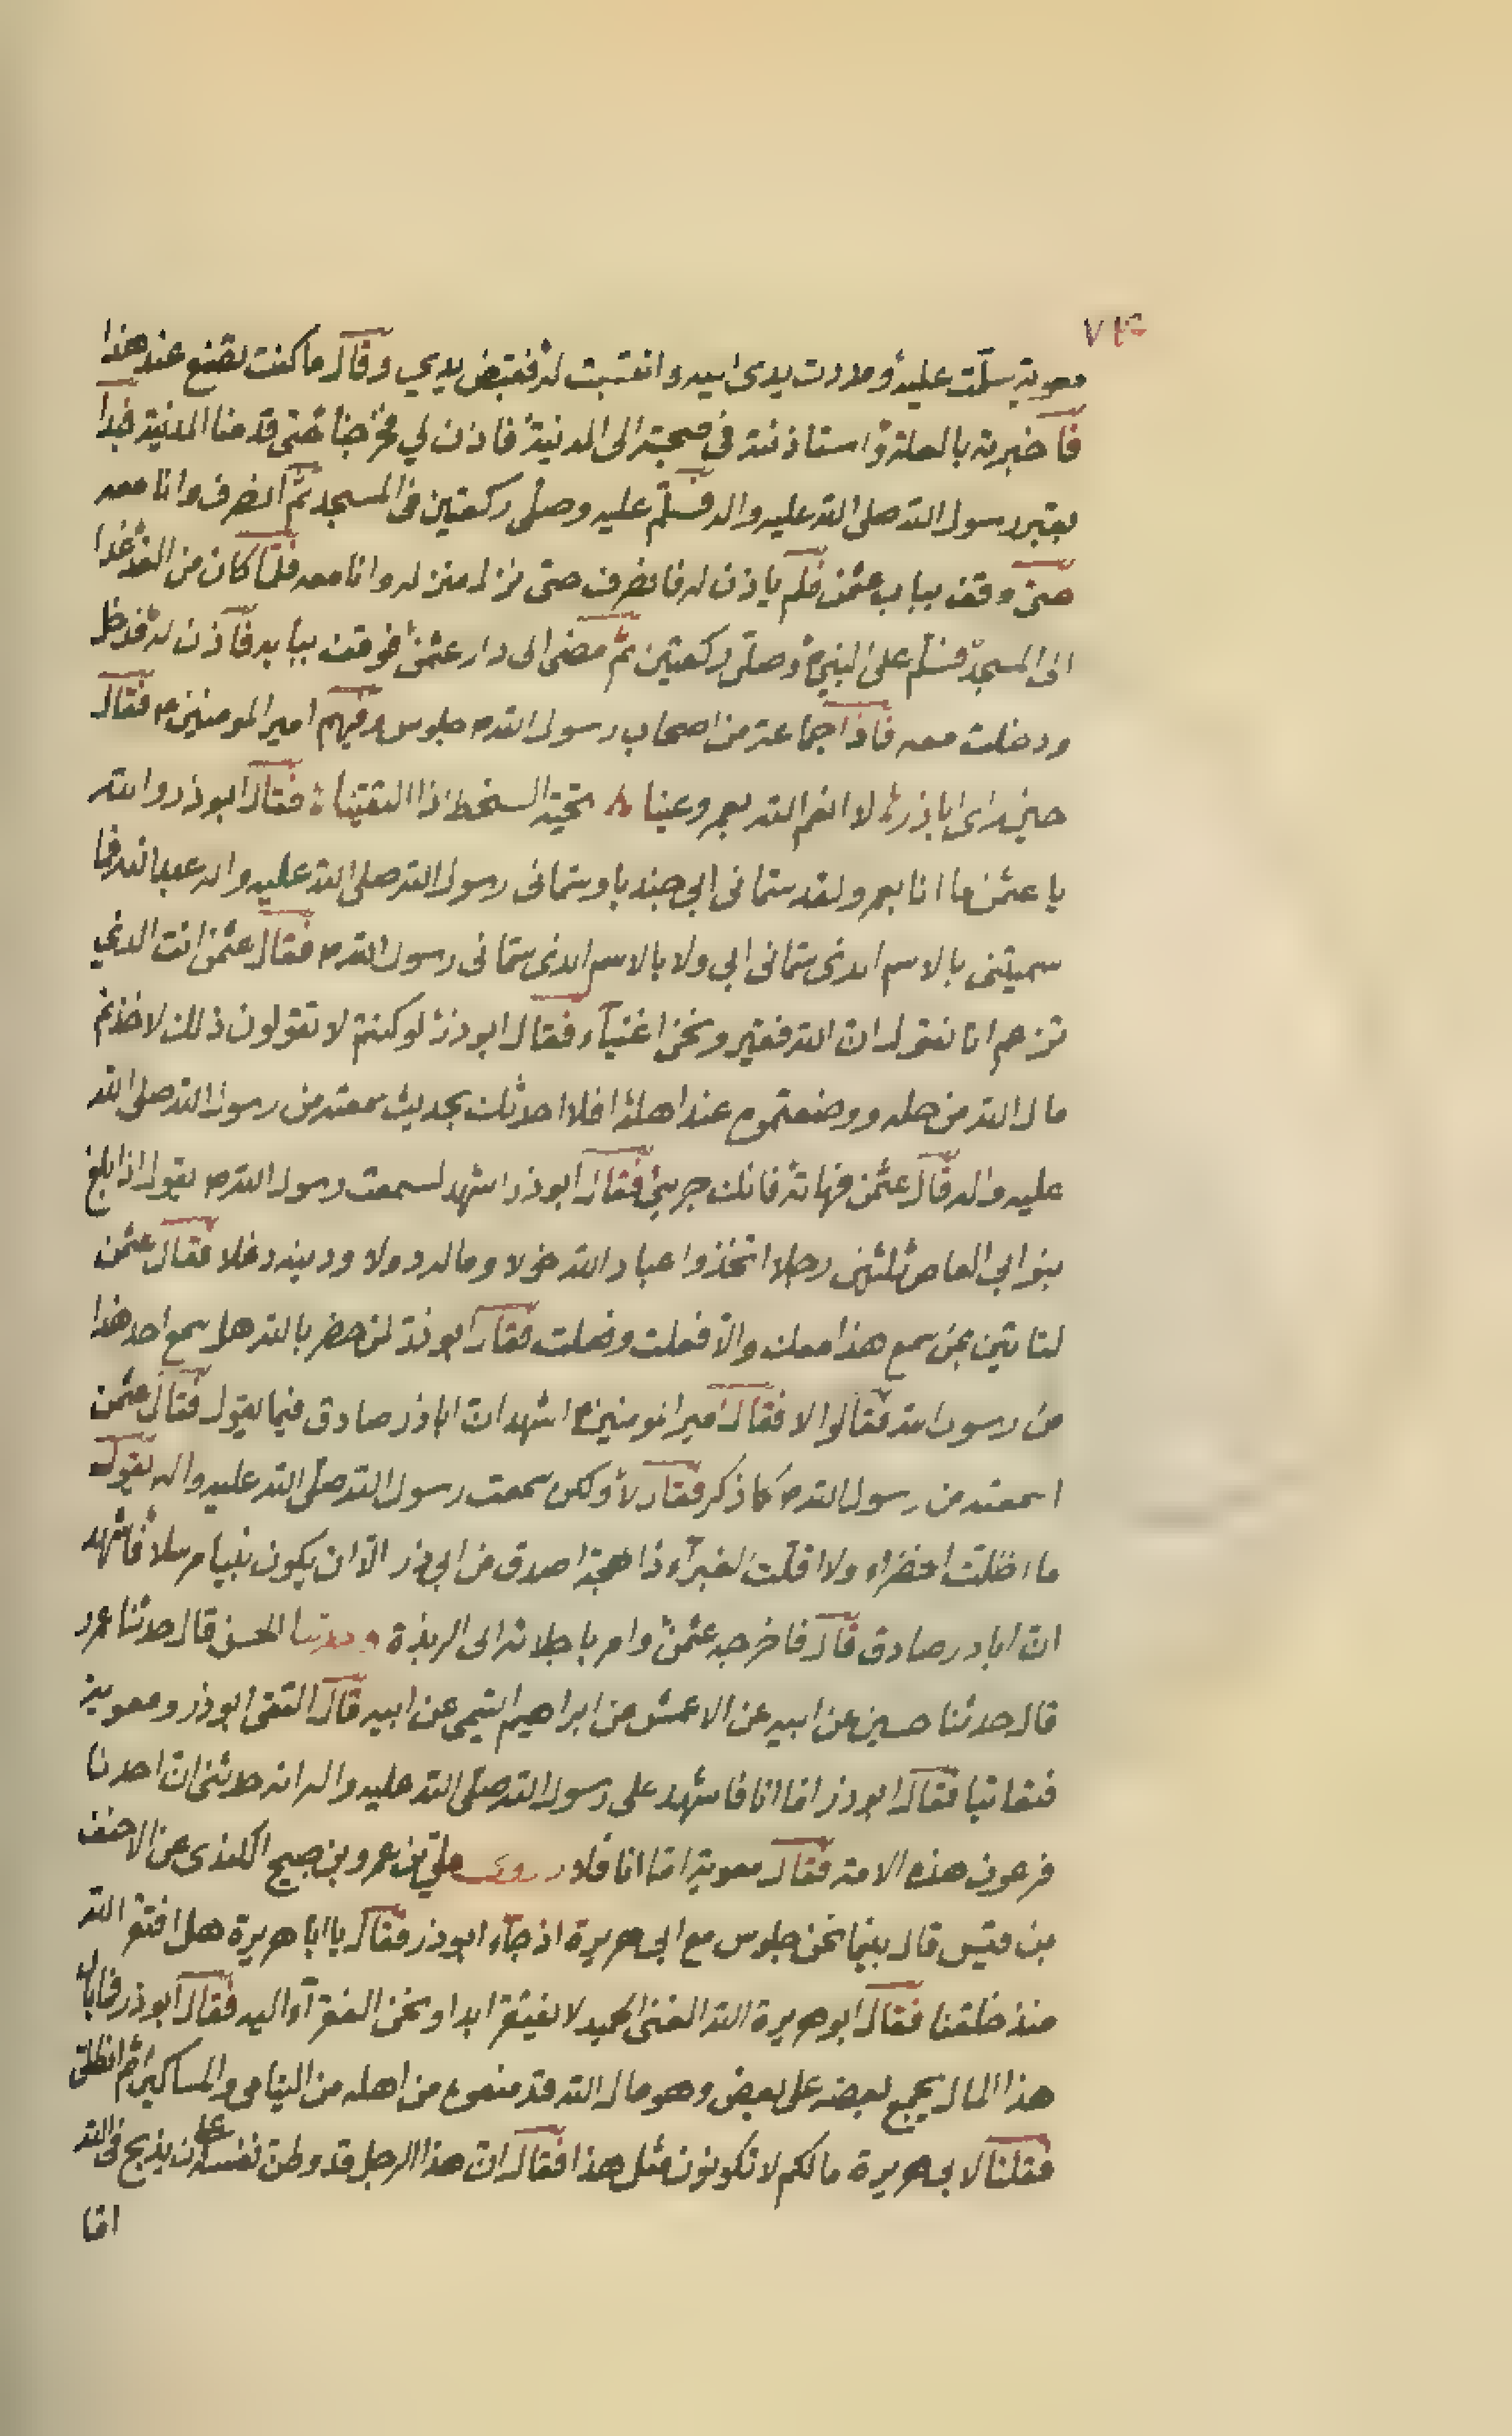 ٧٣
معوية سلّمت عليه ومددت يدى اليه وانتسبت له فقبض يدي وقال ما كنت تصنع عند هذا
فاخبرته بالعلة واستاذنته في صحبته الى المدينة فاذن لي فخرجنا حتى قدمنا المدينة فبدا
بقبر رسول الله صلى الله عليه واله فسلّم عليه وصلى ركعتين في المسجد ثم انصرف وانا معه
حتى وقف بباب عثمن فلم ياذن له فانصرف حتى نزل منزله وانا معه فلما كان من الغد غدا
الى المسجد فسلم على النبي وصلّى ركعتين ثم مضى الى دار عثمن فوقف ببابه فاذن له فدخل
ودخلت معه فاذا جماعة من اصحاب رسول الله جلوس وفيهم امير المومنين فقال
حين راى اباذر لا انعم الله بعمرو عينا ٨ تحية السخط اذا التقينا فقال ابوذر والله
يا عثمن ما انا بعمرو لقد سمانى ابي جندبا وسمانى رسول الله صلى الله عليه واله عبد الله فما
سميتنى بالاسم الذى سمانى ابي ولا بالاسم الذى سمانى رسول الله فقال عثمن انت الذي
تزعم انا نقول ان الله فقير ونحن اغنيآء فقال ابوذر لو كنتم لا تقولون ذلك لاخذتم
مال الله من حله ووضعتموه عند اهله افلا احدثك بحديث سمعته من رسول الله صلى الله
عليه واله قال عثمن فهاته فانك جرئ فقال ابوذر اشهد لسمعت رسول الله يقول اذا بلغ
بنو ابي العاص ثلثين رجلا اتخذوا عباد الله خولا وماله دولا ودينه دغلا فقال عثمن
لتاتين بمن سمع هذا معك والا فعلت وفعلت فقال ابوذر لمن حضر بالله هل سمع احد هذا
من رسول الله فقالوا لا فقال امير المومنين اشهد ان اباذر صادق فيما يقول فقال عثمن
اسمعته من رسول الله كما ذكر فقال لا ولكن سمعت رسول الله صلى الله عليه واله يقول
ما اظلت الخضراء ولا اقلت الغبرآء ذا لهجة اصدق من ابي ذر الا ان يكون نبيا مرسلا فاشهد
ان اباذر صادق قال فاخرجه عثمن وامر باجلائه الى الربذة وحدثنا الحسن قال حدثنا عمرو
قال حدثنا حسين عن ابيه عن الاعمش عن ابراهيم التيمى عن ابيه قال التقى ابوذر ومعوية
فتعاتبا فقال ابوذر اما انا فاشهد على رسول الله صلى الله عليه واله انه حدثنى ان احدنا
فرعون هذه الامة فقال معوية اما انا فلا وروى علي بن عمرو بن صبيح الكندى عن الاحنف
بن قيس قال بينما نحن جلوس مع ابى هريرة اذ جآء ابوذر فقال يا ابا هريرة هل افتقر الله
منذ خلقنا فقال ابو هريرة الله الغنى الحميد لا يفتقر ابدا ونحن الفقرآء اليه فقال ابوذر فما بال
هذا المال يجمع بعضه على بعض وهو مال الله قد منعوه من اهله من اليتامى والمساكين ثم انطلق
فقلنا لابى هريرة مالكم لا تكونون مثل هذا فقال ان هذا الرجل قد وطن نفسه على ان يذبح فى الله
اما